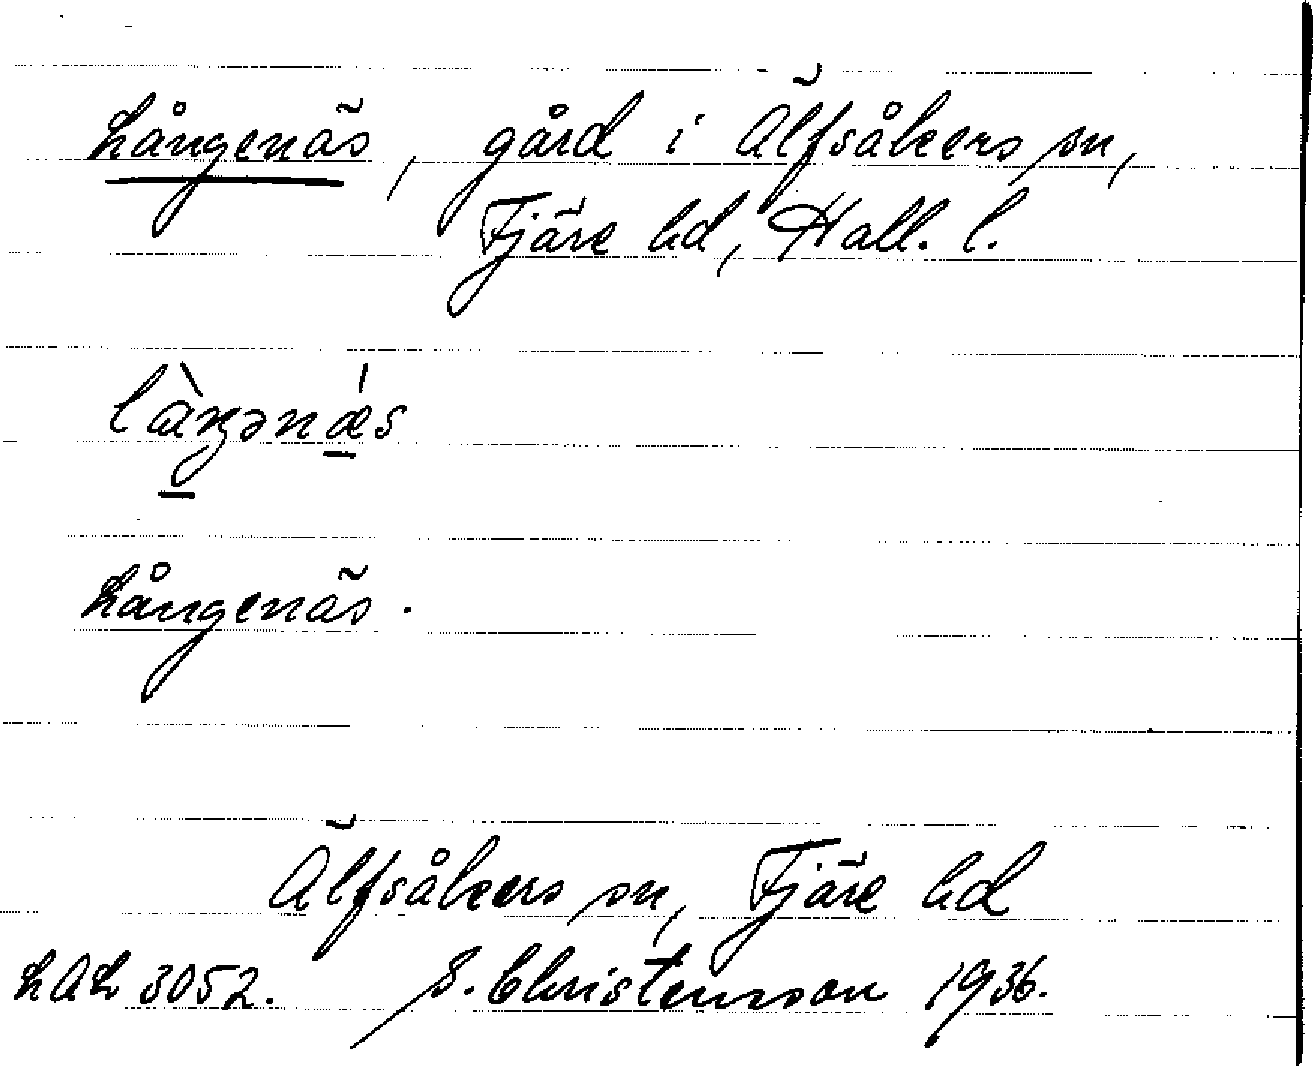 Långenäs, gård i Älfsåkers sn,
Fjäre hd, Hall. l.
làŋənǽs
Långenäs.
Älfsåkers sn, Fjäre hd
LAL 3052. S. Christensson 1936.